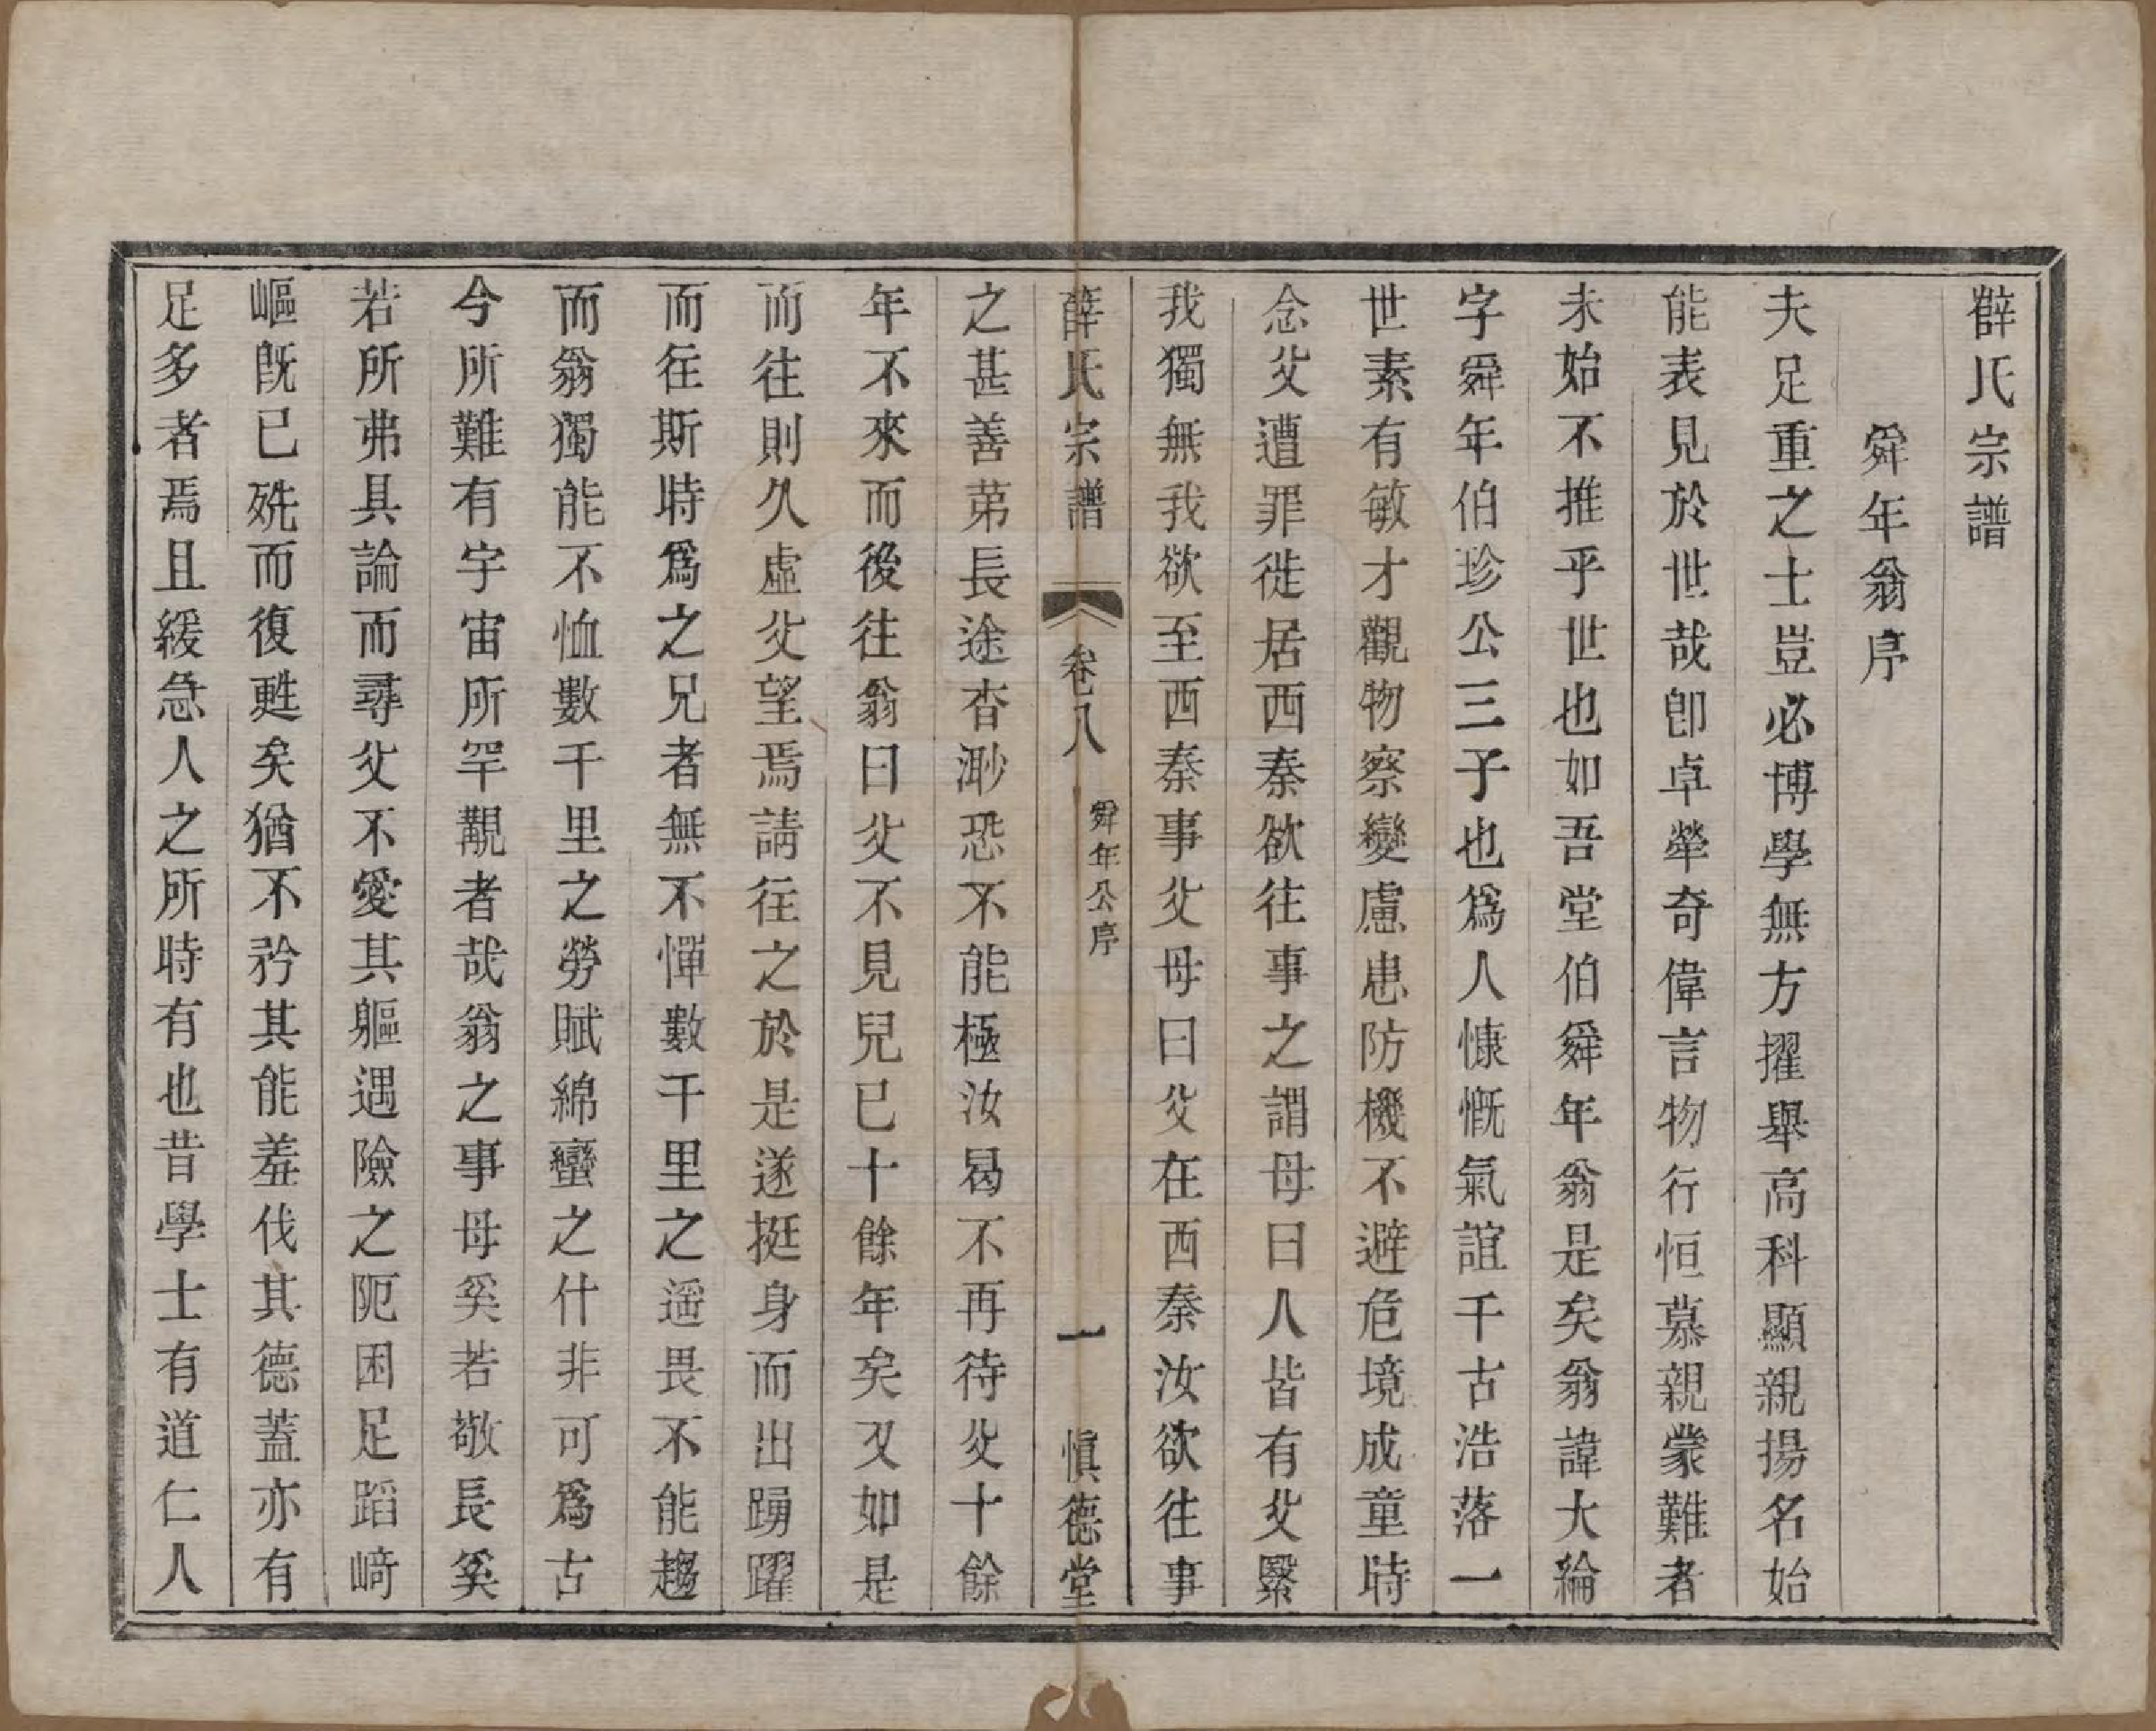 薛氏宗譜
舜年翁序
夫足重之士豈必博學無方擢舉高科顯親揚名始
能表見於世哉卽卓犖奇偉言物行恒慕親蒙難者
未始不推乎世也如吾堂伯舜年翁是矣翁諱大綸
字舜年伯珍公三子也爲人慷慨氣誼千古浩落一
世素有敏才觀物察變慮患防機不避危境成童時
念父遭罪徙居西秦欲往事之謂母曰人皆有父緊
我獨無我欲至西秦事父母曰父在西秦汝欲往事
薛氏宗譜 卷八 舜年公序 一 愼德堂
之甚善第長途杳渺恐不能極汝曷不再待父十餘
年不來而後往翁曰父不見兒已十餘年矣又如是
而往則久虛父望焉請往之於是遂挺身而出踴躍
而往斯時爲之兄者無不憚數千里之遥畏不能趨
而翁獨能不恤數千里之勞賦綿蠻之什非可爲古
今所難有宇宙所罕覯者哉翁之事母奚若敬長奚
若所弗具論而尋父不愛其軀遇險之阨困足蹈崎
嶇旣已殑而復甦矣猶不矜其能羞伐其德蓋亦有
足多者焉且緩急人之所時有也昔學士有道仁人